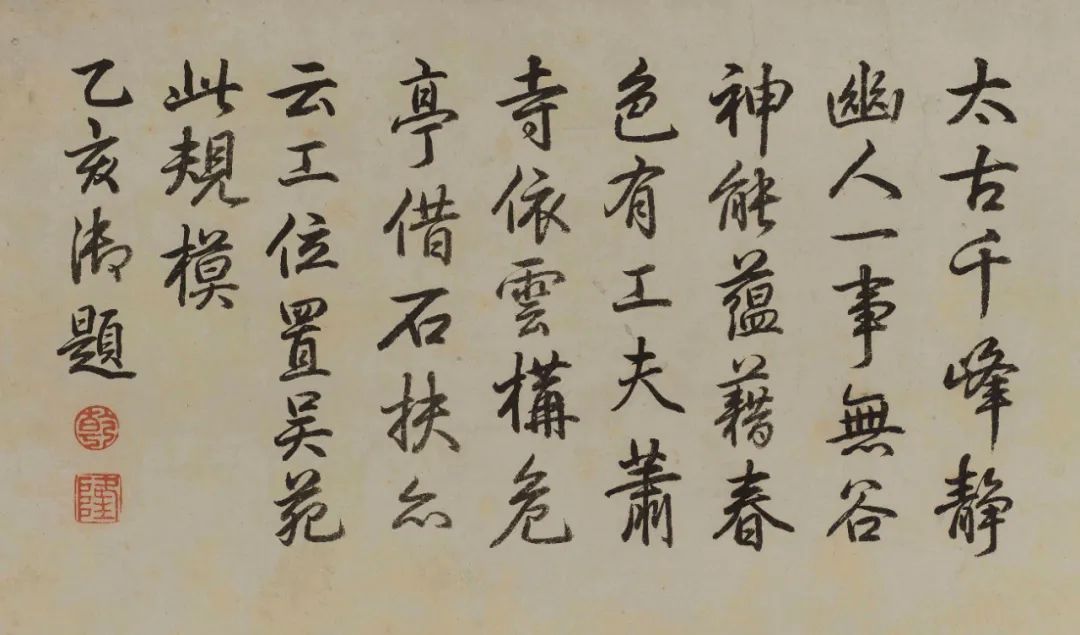 太古千峰靜
幽人一事無谷
神能蘊藉春
色有工夫蕭
寺依雲構危
亭借石扶亦
云工位置吴苑
此規模
乙亥御題
乾
隆